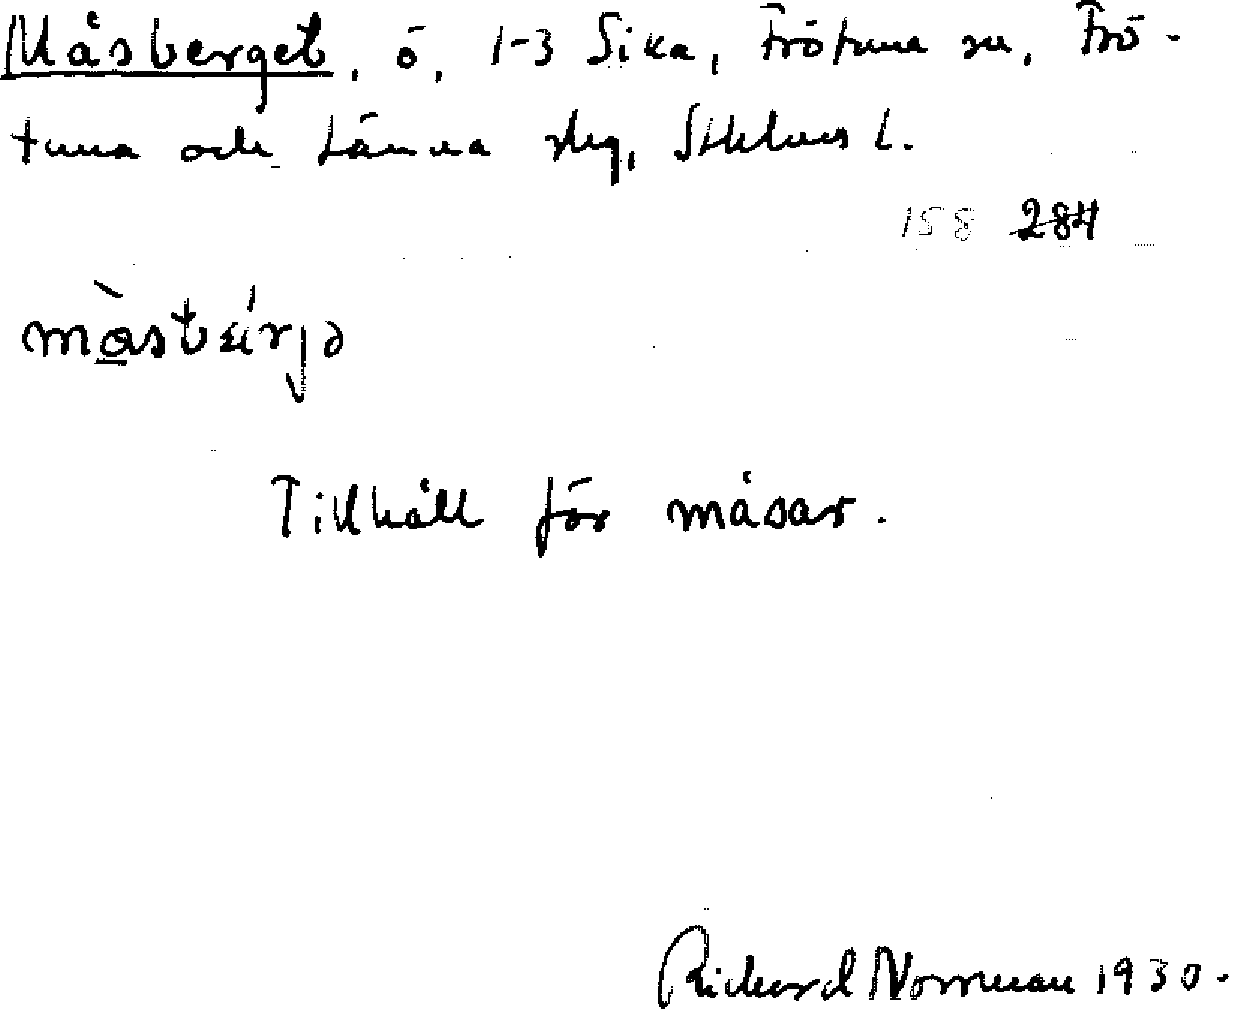 Måsberget, ö, 1-3 Sika, Frötuna sn, Frö-
tuna och Länna skg, Sthlms l.
158 284
Tillhåll för måsar.
Richard Norrman 1930.